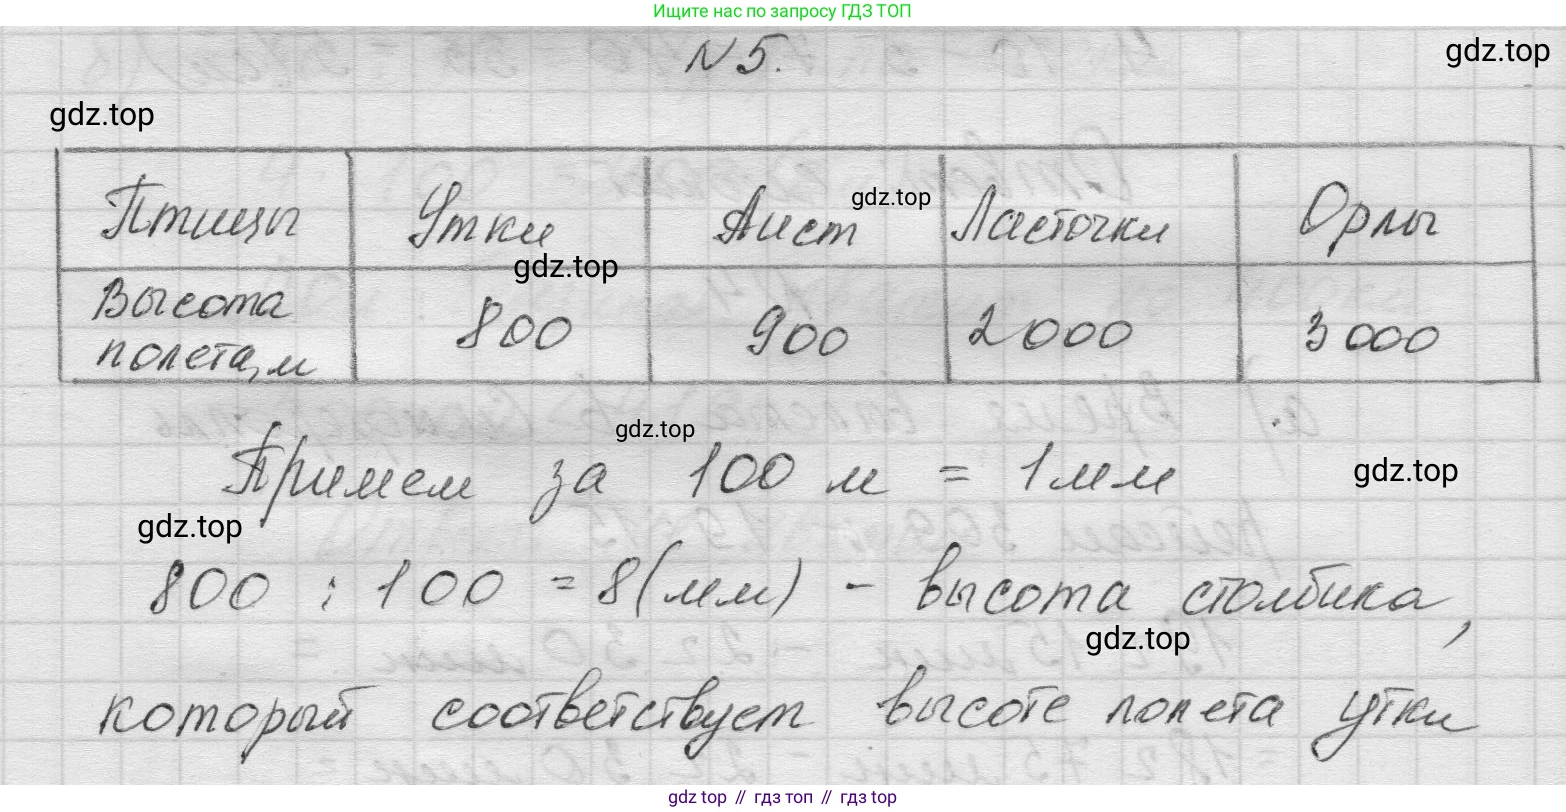 Ищите нас по запросу ГДЗ ТОП
N 5.
gdz.top
gdz.top
Птицы Утки Аист Ласточки Орлы
gdz.top
gdz.top
Высота полета, м 800 900 2000 3000
gdz.top
Примем за 100 м = 1 мм
gdz.top
gdz.top
800 : 100 = 8 (мм) - высота столбика,
gdz.top
который соответствует высоте полета утки
gdz top // гдз топ // гдз top